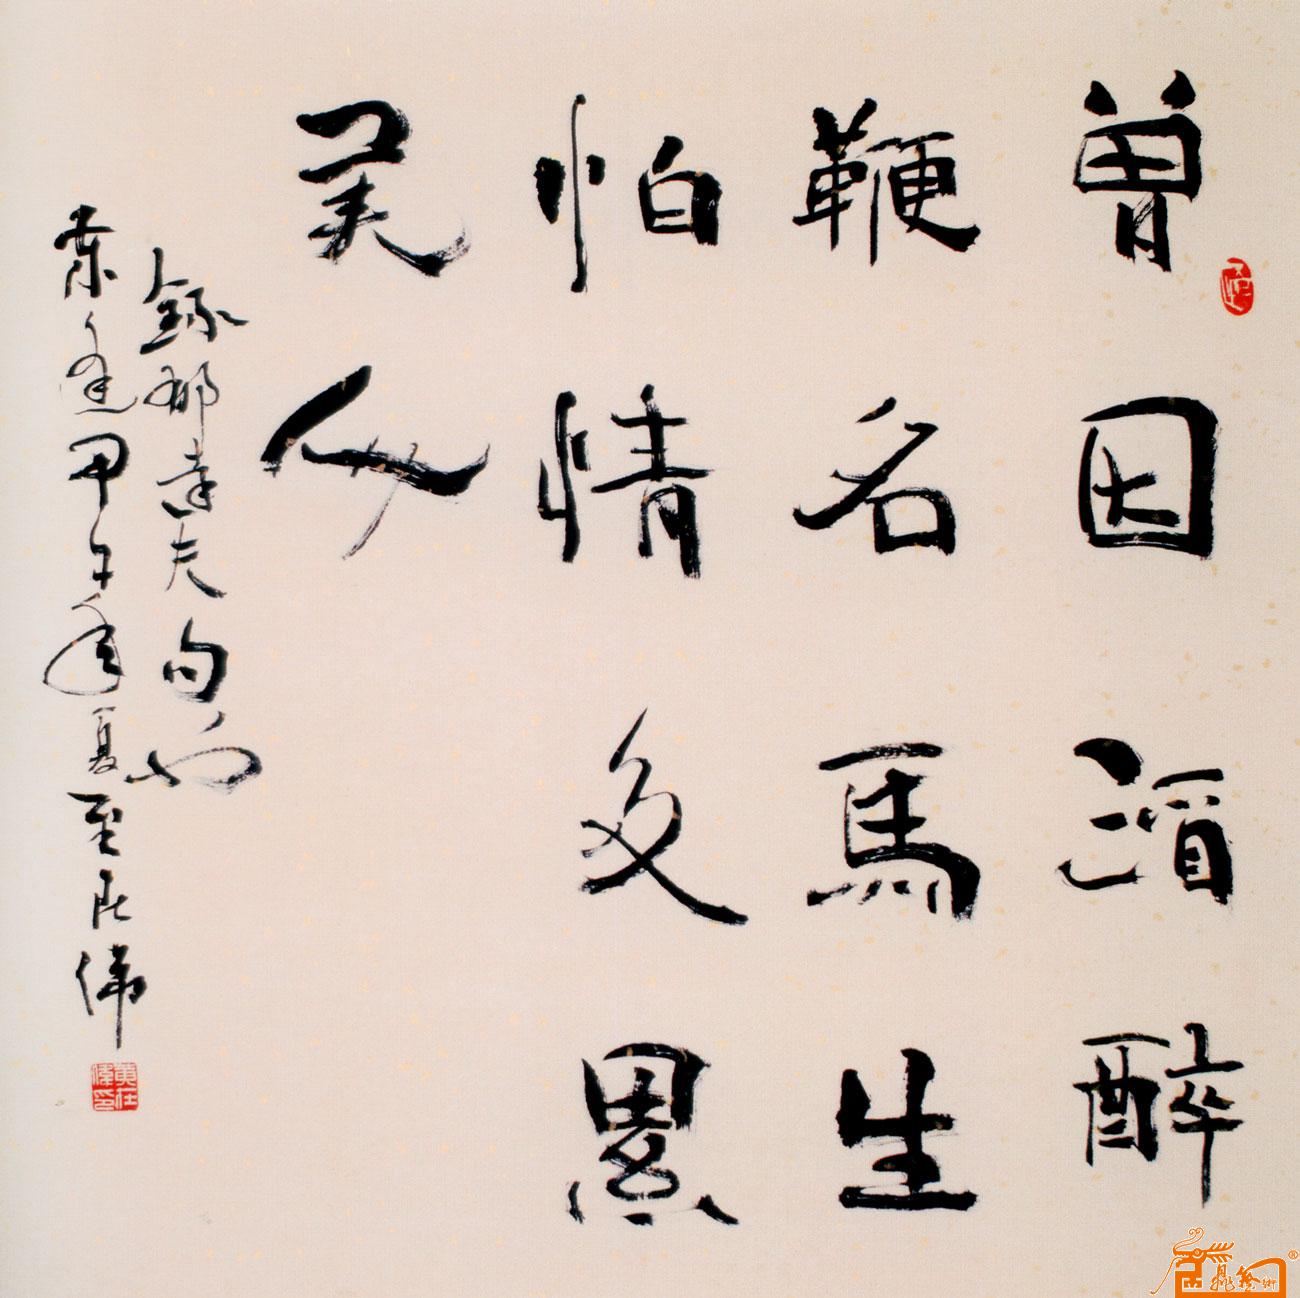 曾因酒醉
鞭名馬生
怕情多累
美人
錄郁達夫句也
逢甲午年夏至在偉